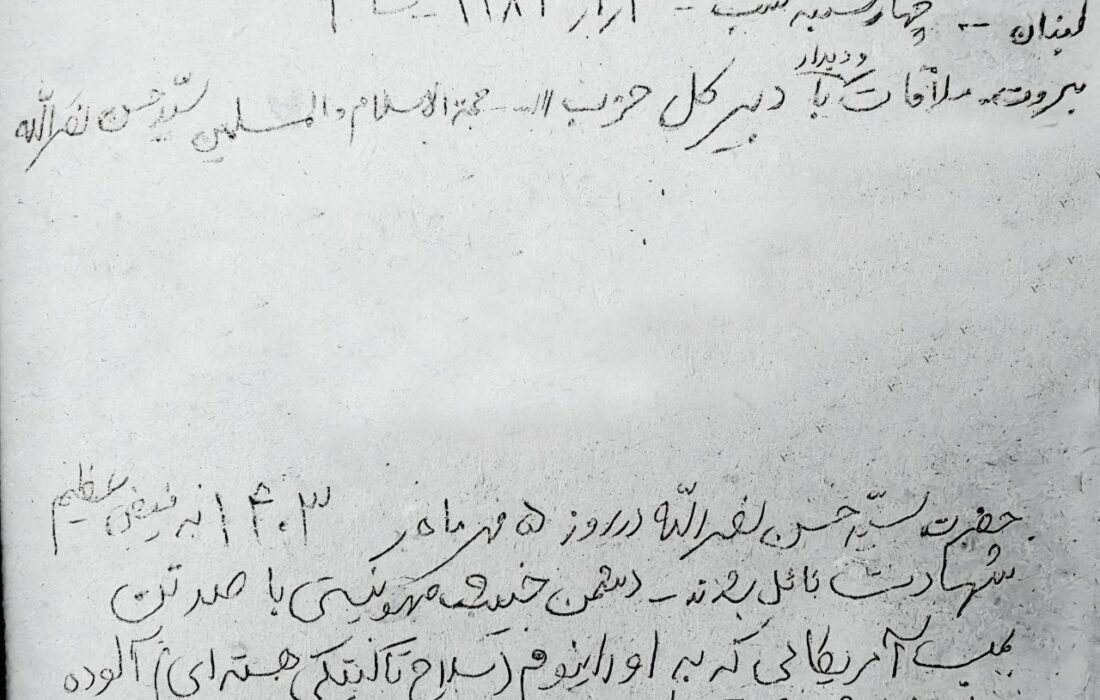 لبنان -- چهارشنبه شب -
بیروت - ملاقات و دیدار با دبیر کل حزب الله - حجة الاسلام والمسلمین سیّد حسن نصرالله
حضرت سیّد حسن نصرالله در روز ۵ مهر ماه ۱۴۰۳ به فیض عظیم
شهادت نائل شدند - دشمن خبیث صهیونیستی با صد تن
بمب آمریکائی که به اورانیوم (سلاح تاکتیکی هسته‌ای) آلوده